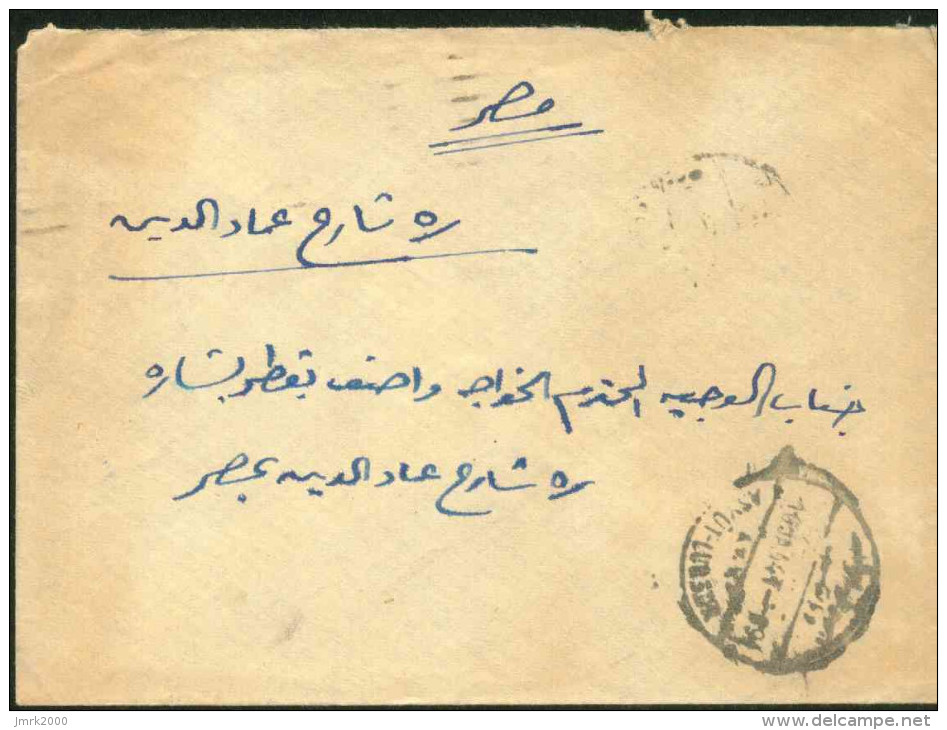 مصر
٥١ شارع عماد الدين
جناب الوجيه المحترم الخواجه واصف بقطر بشاره
٥١ شارع عماد الدين بمصر
jmrk2000
www.delcampe.net